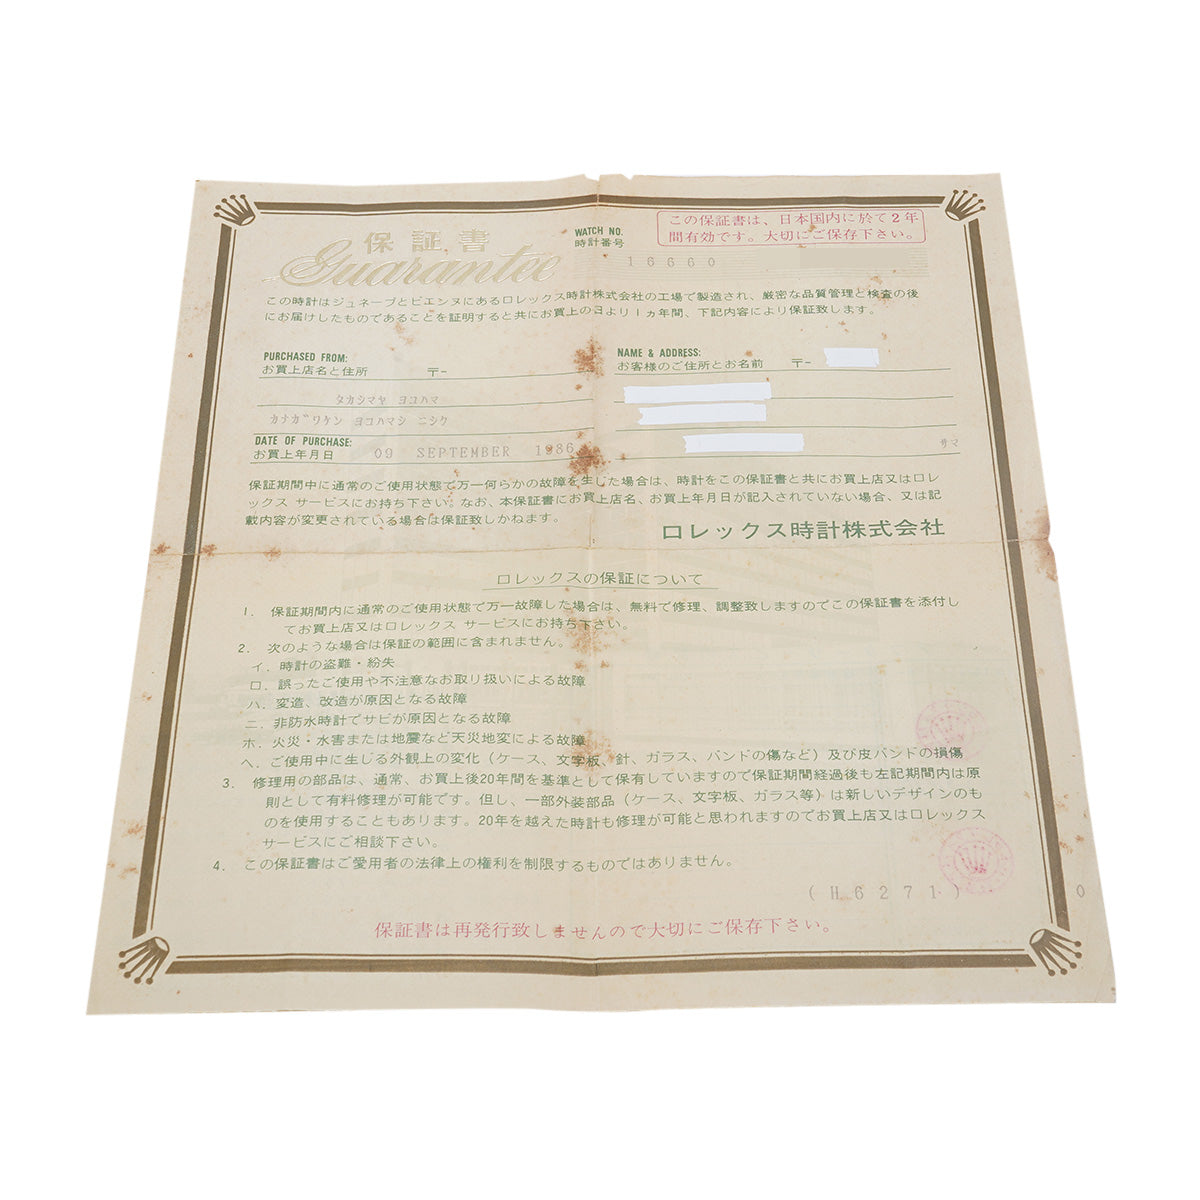 保証書
Guarantee
WATCH NO.
時計番号
16660
この保証書は、日本国内に於て2年
間有効です。大切にご保存下さい。
この時計はジュネーブとビエンヌにあるロレックス時計株式会社の工場で製造され、厳密な品質管理と検査の後
にお届けしたものであることを証明すると共にお買上の日より1ヵ年間、下記内容により保証致します。
PURCHASED FROM:
お買上店名と住所 〒-
タカシマヤ ヨコハマ
カナガワケン ヨコハマシ ニシク
DATE OF PURCHASE:
お買上年月日 09 SEPTEMBER 1986
NAME & ADDRESS:
お客様のご住所とお名前 〒-
サマ
保証期間中に通常のご使用状態で万一何らかの故障を生じた場合は、時計をこの保証書と共にお買上店又はロレ
ックス サービスにお持ち下さい。なお、本保証書にお買上店名、お買上年月日が記入されていない場合、又は記
載内容が変更されている場合は保証致しかねます。
ロレックス時計株式会社
ロレックスの保証について
1. 保証期間内に通常のご使用状態で万一故障した場合は、無料で修理、調整致しますのでこの保証書を添付し
てお買上店又はロレックス サービスにお持ち下さい。
2. 次のような場合は保証の範囲に含まれません。
イ. 時計の盗難・紛失
ロ. 誤ったご使用や不注意なお取り扱いによる故障
ハ. 変造、改造が原因となる故障
ニ. 非防水時計でサビが原因となる故障
ホ. 火災・水害または地震など天災地変による故障
ヘ. ご使用中に生じる外観上の変化（ケース、文字板、針、ガラス、バンドの傷など）及び皮バンドの損傷
3. 修理用の部品は、通常、お買上後20年間を基準として保有していますので保証期間経過後も左記期間内は原
則として有料修理が可能です。但し、一部外装部品（ケース、文字板、ガラス等）は新しいデザインのも
のを使用することもあります。20年を越えた時計も修理が可能と思われますのでお買上店又はロレックス
サービスにご相談下さい。
4. この保証書はご愛用者の法律上の権利を制限するものではありません。
(H 6271) 0
保証書は再発行致しませんので大切にご保存下さい。